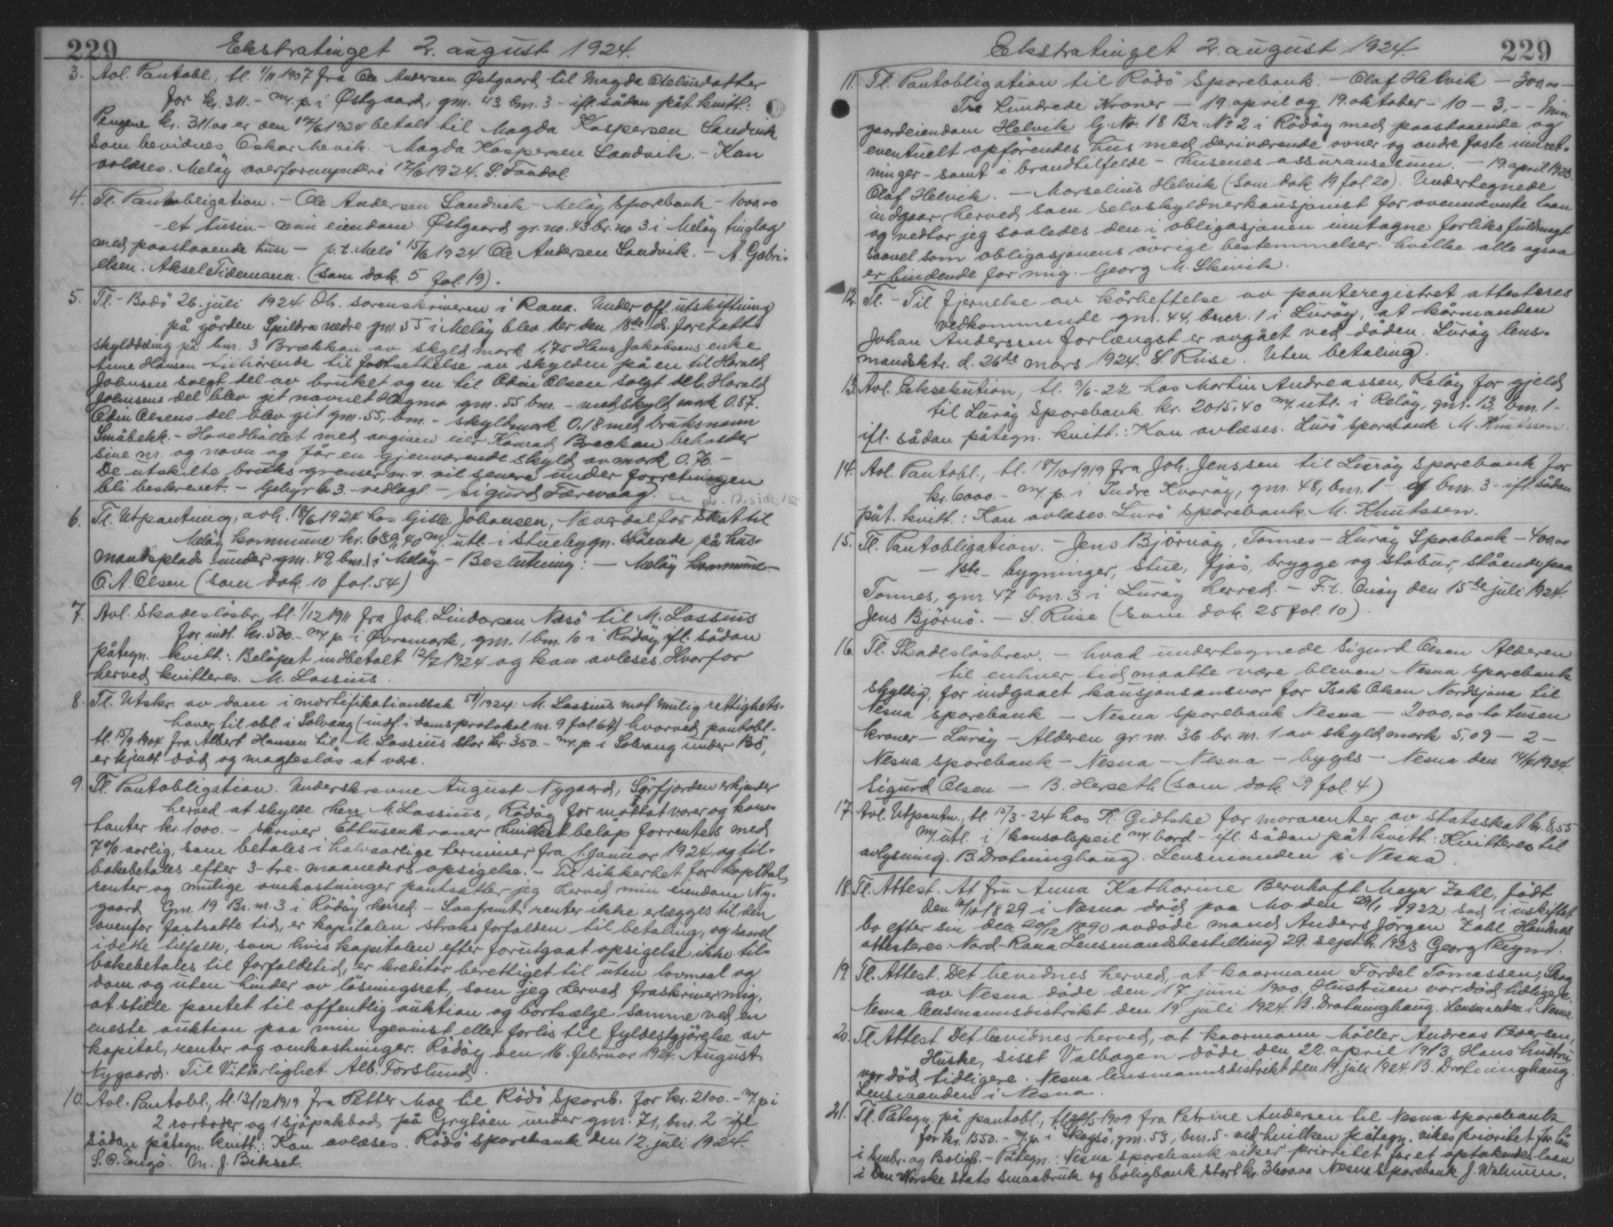 229
Ekstratinget 2. august 1924.
3. Avl. Pantobl., tl. 1/11 1907 fra Ole Andersen Østgaard til Magda
for kr. 311.- m. p. i Østgaard, gm. 43 bm. 3 - ifl. sådan påt. kvitt.
Pengene kr. 311.00 er den 17/6 1924 betalt til Magda Kaspersen Sandvik
som bevidnes Oskar Mevik. - Magda Kaspersen Sandvik. - Kan
avlæses. Meløy overformynderi 17/6 1924. S. Fondal
4. Tl. Pantobligation. - Ole Andersen Sandvik - Meløy Sparebank - 1000,00
- et tusin - min eiendom Østgaard gr. no. 43 br. no 3 i Meløy tinglag
med paastaaende huse - p.t. Melö 15/6 1924 Ole Andersen Sandvik. - A. Gabri-
elsen. Aksel Tidemann. (som dok. 5 fol. 19).
5. Tl. - Bodö 26. juli 1924. Hr. sorenskriveren i Rana. Under off. utskiftning
på gården Spildra nedre gm. 55 i Meløy blev der den 18de ds. foretatt
skylddeling på bm. 3 Brækkan av skyld mark 1,75 Hans Jakobsens enke
Anne Hansen tilhörende til fortsettelse av skylden på en til Harald
Johnsen solgt del av bruket og en til Odin Olsen solgt del. Harald
Johnsens del blev git navnet Hagmo gm. 55 bm. - med skyld mark 0.87.
Odin Olsens del blev git gm. 55, bm. - skyldmark 0,18 med bruksnavn
Småbekk. - Hovedbøllet med angiven eier Konrad Breckan beholder
sine nr. og navn og får en gjenværende skyld av mark 0.70 -
De utskilte bruks grenser m.v. vil senere under forretningen
bli beskrevet. - Gebyr kr. 3. - vedlagt - Sigurd Færevaag.
6. Tl. Utpantning, avh. 18/6 1924 hos Gisle Johansen, Næverdal for skat til
Meløy kommune kr. 689,40 m. utl. i stuebygn. stående på hus-
mandsplads under gm. 49 bm. 1 i Meløy - Beslutning: - Meløy kommune
O. A. Olsen (som dok. 10 fol. 54)
7. Avl. Skadeslösbr., tl. 1/12 1911 fra Joh. Lindorsen Næsö til M. Lossius
for indt. kr. 500. - m. p. i Övremark, gm. 1 bm. 10 i Rödøy ifl. sådan
påtegn. kvitt.: Beløpet indbetalt 12/7 1924 og kan avleses. Hvorfor
herved kvitteres. M. Lossius.
8. Tl. Utskr. av dom i mortifikationssak 5/1 1924. M. Lossius mot mulig rettighets-
haver til obl. i Solvang (indf. i domsprotokol nr. 9 fol. 64) hvorved pantobl.
tl. 15/9 1904 fra Albert Hansen til M. Lossius stor kr. 350 - m. p. i Solvang under Bö,
er kjendt död og magteslös at være.
9. Tl. Pantobligation. Underskrevne August Nygaard, Sörfjorden erkjender
herved at skylde herr M. Lossius, Rödøy for mottat varer og kon-
tanter kr. 1000. - skriver Ettusenkroner hvilket belöp forrentes med
7% aarlig, som betales i halvaarlige terminer fra 1. Januar 1924, og til-
bakebetales efter 3-tre-maaneders opsigelse. - Til sikkerhet for kapital,
renter og mulige omkostninger pantsætter jeg herved min eiendom Ny-
gaard Gm. 19 Br. nr. 3 i Rödøy herred. - Saafremt renter ikke erlægges til den
ovenfor fastsatte tid, er kapitalen straks forfalden til betaling, og saavel
i dette tilfælde, som hvis kapitalen efter forutgaat opsigelse ikke til-
bakebetales til forfaldstid, er kreditor berettiget til uten lovmaal og
dom og uten hinder av lösningsret, som jeg herved fraskriver mig,
at stille pantet til offentlig auktion og bortsælge samme ved en
eneste auktion paa min gevinst eller forlis til fyldestgjörelse av
kapital, renter og omkostninger. Rödøy den 16. februar 1924. August
Nygaard. Til Vitterlighet Alb. Forslund.
10. Avl. Pantobl., tl. 12/12 1919 fra Petter Moe til Rödö Spareb. for kr. 2100. - m. p. i
2 rorboder og 1 sjöpakbod på Grytöen under gm. 71, bm. 2 - ifl.
sådan påtegn. kvitt.: Kan avlæses. Rödö sparebank den 12. juli 1924.
S. C. Engö. M. J. Bekset.
Ekstratinget 2. august 1924
229
11. Tl. Pantobligation til Rödö Sparebank. - Olaf Helvik - 300,00 -
Tre hundrede Kroner - 19. april og 19. oktober - 10 - 3, - - Min
gaardeiendom Helvik G. No. 18 Br. No 2 i Rödöy med paastaaende og
eventuelt opförendes hus med deriværende ovner og andre faste indret-
ninger - samt i brandtilfelde - husenes assuransesum. - 19 april 1923
Olaf Helvik. - Marselius Helvik (som dok. 19 fol. 20). Undertegnede
indgaar herved som selvskyldnerkausjonist for ovennævnte laan
og vedtar jeg saaledes den i obligasjonen inntagne forliksfuldmagt
saavel som obligasjonens övrige bestemmelser hvilke alle ogsaa
er bindende for mig. Georg M. Skivik.
12. Tl. - Til fjernelse av kårheftelse av panteregistret attesteres
vedkommende gm. 44, bnr. 1 i Luröy, at kårmanden
Johan Anderssen forlængst er avgået ved döden. Luröy lens-
mandsktr. d. 26de mars 1924. S. Riise. Uten betaling.
13. Avl. Eksekution, tl. 9/6-22 hos Martin Andreassen, Reløy for gjeld
til Luröy Sparebank kr. 2015,40 m. utl. i Reløy, gm. 13, bm. 1 -
ifl. sådan påtegn. kvitt.: Kan avlæses. Lurö Sparebank M. Knutssen.
14. Avl. Pantobl., tl. 18/10 1919 fra Joh. Jenssen til Luröy Sparebank for
kr. 6000. - m. p. i Indre Kvaröy, gm. 48, bm. 1 og bm. 3 - ifl. sådan
påt. kvitt.: Kan avlæses Lurö Sparebank M. Knutssen.
15. Tl. Pantobligation. - Jens Björnöy, Tonnes - Luröy Sparebank - 400,00
- 1ste - bygninger, stue, fjös, brygge og stabur, stående paa
Tonnes, gm. 47 bm. 3 i Luröy herred. - F.t. Onöy den 15de juli 1924.
Jens Björnö. - S. Riise (som dok. 25 fol. 10).
16. Tl. Skadeslösbrev. - hvad undertegnede Sigurd Olsen Alderen
til enhver tid maatte være bleven Nesna sparebank
skyldig, for indgaaet kausjonsansvar for Isak Olsen Nordsjona til
Nesna sparebank - Nesna sparebank Nesna - 2000,00 to tusen
kroner - Luröy - Alderen gr. nr. 36 br. nr. 1 av skyld mark 5,09 - 2 -
Nesna sparebank - Nesna - Nesna - bygds - Nesna den 14/7 1924.
Sigurd Olsen - B. Herseth (som dok. 9 fol. 4)
17. Avl. Utpantn., tl. 15/3-24 hos H. Gidtske for morarenter av statsskat kr. 8,55
m. utl. i 1 konsolspeil m. bord - ifl. sådan påt. kvitt: Kvitteres til
avlysning. B. Drotninghaug. Lensmanden i Nesna.
18. Tl. Attest. At fru Anna Katharine Bernhoft Meyer Zahl, födt
den 10/10 1829 i Nesna död paa Mo den 29/1 1922 sad i uskiftet
bo efter sin den 20/12 1890 avdöde mand Anders Jörgen Zahl Handnes
attesteres. Nord-Rana Lensmandsbestilling 29. septbr. 1923 Georg Rygn.
19. Tl. Attest. Det bevidnes herved, at kaarmann Fordel Tomassen, Skog
av Nesna döde den 17 juni 1900. Hustruen var död tidligere.
Nesna lensmannsdistrikt den 19 juli 1924. B. Drotninghaug. Lensmanden i Nesna
20. Tl. Attest. Det bevidnes herved, at kaarmann Möller Andreas Pedersen,
Huske, sisst Valbogen döde den 22. april 1913. Hans hustru
var död tidligere. Nesna lensmannsdistrikt den 19. juli 1924 B. Drotninghaug.
Lensmanden i Nesna.
21. Tl. Påtegn. på pantobl., 1909 fra Petrine Andersen til Nesna sparebank
for kr. 1550. - m. p. i Skogsö, gm. 53, bm. 5 - ved hvilken påtegn. vikes prioritet for lån
i Småbr. og Boligb. - Påtegn.: Nesna sparebank viker prioritet for et optakendes laan
i Den Norske Stats småabruk og boligbank stort kr. 3600.00 Nesna Sparebank J. Walnum.